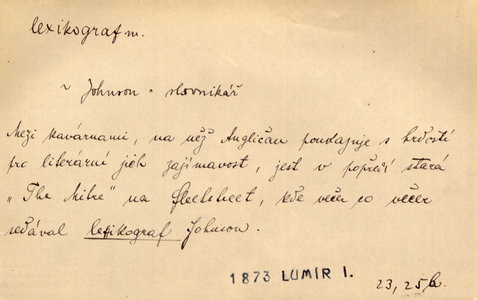 lexikograf m.
~ Johnson = slovnikář
Mezi kavárnami, na něž Angličan poukazuje s hrdostí
pro literární jich zajímavost, jest v popředí stará
„The Mitre" na Fleetstreet, kde večer co večer
sedával lexikograf Johnson.
1873 LUMÍR I.
23, 256.